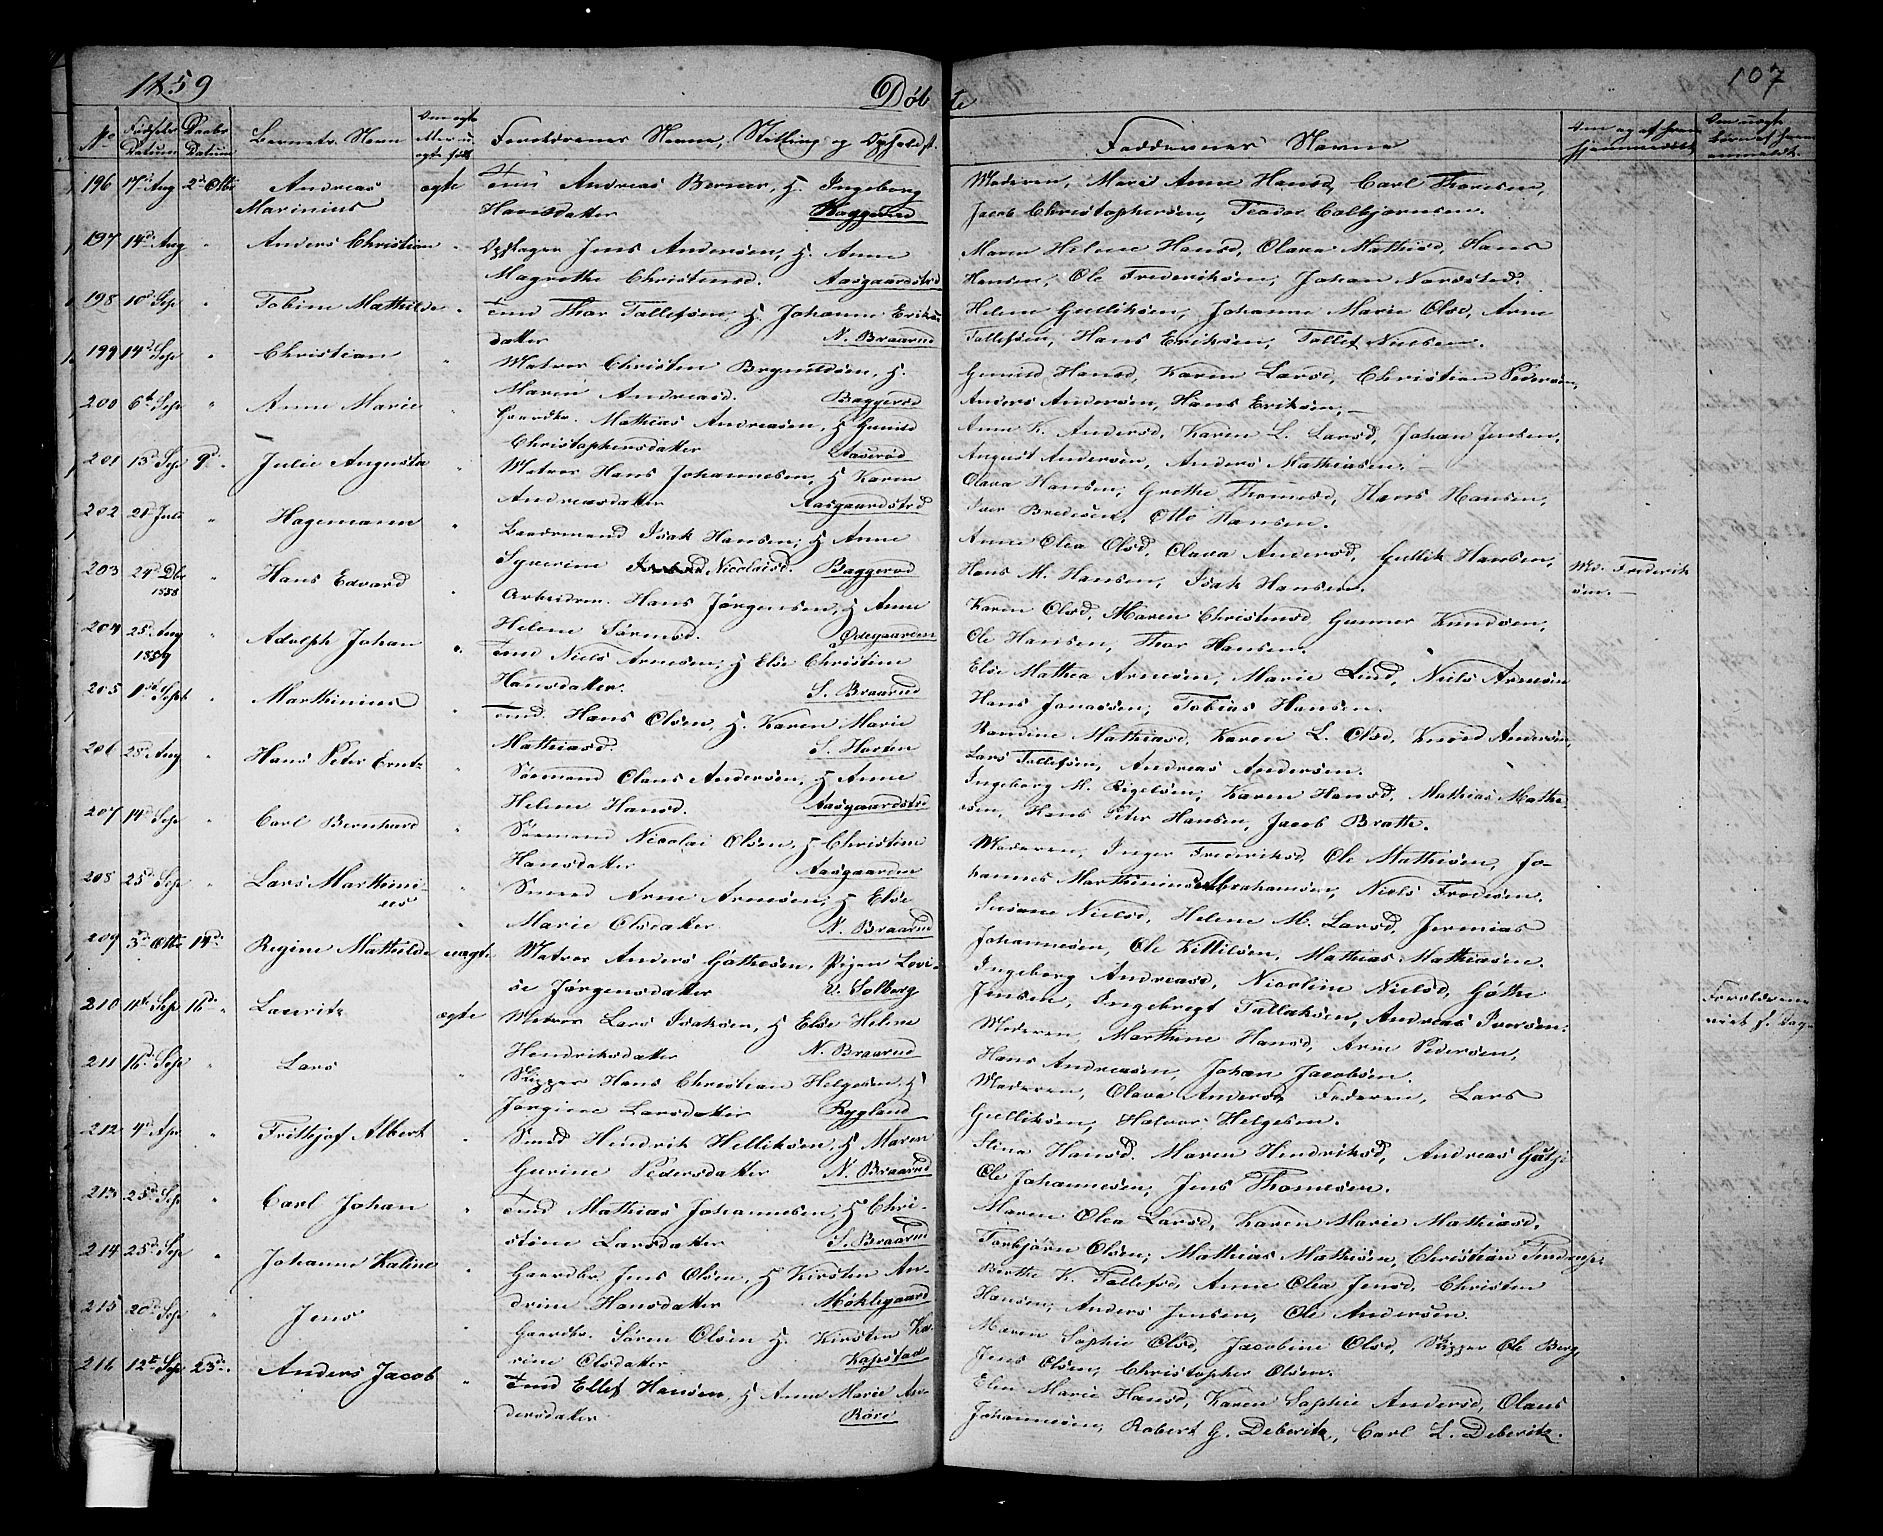 1859 Døbte 107
No Fødsels Datum Daabs Datum Barnets Navn Om ægte eller uægte født Forældrenes Navne, Stilling og Opholdst. Faddernes Navne
196 17d Aug 2d Octbr Andreas Marinius ægte Andreas Berner, H. Ingeborg
Hansdatter Baggerød
Moderen, Mari Anne Hansd, Carl Thoresen,
Jacob Christophersen, Colbjørnsen.
197 14d Aug " Anders Christian " Opsⁱᵈᵈer Jens Andersen, H. Anne
Magrethe Christensd. Aasgaardstrd
Maren Helene Hansd, Olava Mathisd, Hans
Hansen, Ole Frederiksen, Johan Nordsted.
198 10d Sep " Tobine Mathilde " Tmd Thor Tollefsen, H. Johanne Eriks
datter N. Braarud
Helene Gulliksen, Johanne Marie Olsd, Arne
Tollefsen, Hans Eriksen, Tollef Nielsen.
199 14d Sep " Christian " Matros Christen Brynildsen, H.
Maren Andreasd. Baggerød
Gunild Hansd, Karen Larsd, Christian Pedersen,
Anders Andersen, Hans Eriksen,
200 6te Sep " Anne Marie " Gaardbr. Mathias Andreasen, H Gunild
Christophersdatter Aaserød
Anne K. Andersd, Karen L. Larsd, Johan Jensen,
August Andersen, Anders Mathiasen.
201 13d Sep 9d " Julie Augusta " Matros Hans Johannesen, H Karen
Andreasdatter Aasgaardstrd
Olava Hansen, Grethe Thomesd, Hans Hansen,
Iver Bredesen, Otto Hansen.
202 21 Juli " Hagemann " Isak Hansen, H Anne
Syverine Nicolaisd. Baggerød
Anne Olea Olsd, Olava Andersd, Gullik Hansen,
Hans M. Hansen, Isak Hansen.
203 24d Dbr 1858 " Hans Edvard " Arbeidsm. Hans Jørgensen, H Anne
Helene Sørensd. Ødegaarden
Karen Olsd, Maren Christensd Gunner Knudsen,
Ole Hansen, Thor Hansen.
Md. Frederiksen.
204 25d Aug 1859 " Adolph Johan " Tmd Niels Arnesen, H Else Christine
Hansdatter. S. Braarud
Else Mathea Arnesen, Marie Lind, Niels Arnesen
Hans Jonassen, Tobias Hansen.
205 1st Sept " Marthinius " Tmd. Hans Olsen, H. Karen Marie
Mathiasd. S. Horten
Randine Mathiasd, Karen L. Olsd, Knud Andersen,
Lars Tollefsen, Andreas Andersen.
206 28d Aug " Hans Peter Erntz " Sømand Claus Andersen, H Anne
Helene Hansd. Aasgaardstrd
Ingeborg M. Rigelsen, Karen Hansd, Mathias Mathe
sen, Hans Peter Hansen, Jacob Brathe.
207 14d Sep " Carl Bernhard " Sømand Nicolai Olsen, H Christine
Hansdatter Aasgaarden
Moderen, Inger Frederiksd, Ole Mathisen, Jo-
hannes Marthinius Abrahamsen, Niels Fredesen.
208 25d Sep " Lars Marthini-
us " Smed Arne Arnesen, H Else
Marie Olsdatter N. Braarud
Susane Nielsd, Helene M. Larsd, Jeremias
Johannesen, Ole Kittilsen, Mathias Mathiasen.
209 3d Octbr 14d " Regine Mathilde uægte Matros Anders Gøthesen, Pigen Lovi-
se Jørgensdatter v. Solberg
Ingeborg Andreasd, Nicoline Nielsd, Gøthe
Jensen, Ingebregt Tallaksen, Andreas Iversen.
Forældrene
210 11te Sep 16d " Lauritz ægte Matros Lars Isaksen, H Else Helene
Hendriksdatter N. Braarud
Moderen, Marthine Hansd, Arne Pedersen,
Hans Andreasen, Johan Jacobsen.
211 16d Sep " Lars " Skipper Hans Christian Helgesen, H
Jørgine Larsdatter Rygland
Moderen, Olava Andersd Faderen, Lars
Gulliksen, Halvor Helgesen.
212 4d Apr " Frithjof Albert " Smed Hendrik Helliksen, H Maren
Gurine Pedersdatter N. Braarud
Stina Hansd. Maren Hendriksd, Andreas
Ole Johannesen, Jens Thomesen.
213 25d Sep " Carl Johan " Tmd Mathias Johannesen, H Chri-
stine Larsdatter S. Braarud
Maren Olea Larsd, Karen Marie Mathiasd,
Torbjørn Olsen, Mathias Mathisen, Christian
214 25d Sep " Johanne Kaline " Gaardbr. Jens Olsen, H Kirsten An-
drine Hansdatter Møklegaard
Berthe K. Tollefsd, Anne Olea Jensd, Christen
Hansen, Anders Jensen, Ole Andersen.
215 20d Sep " Jens " Gaardbr. Søren Olsen H. Kirsten Ka-
rine Olsdatter Kapstad
Maren Sophie Olsd, Jacobine Olsd, Skipper Ole Berg,
Jens Olsen, Christopher Olsen.
216 12te Sep 23d " Anders Jacob " Tmd Ellef Hansen, H Anne Marie An-
dersdatter Røre
Elen Marie Hansd, Karen Sophie Andersd, Olaus
Johannesen, Robert G. Deberitz, Carl L. Deberitz.